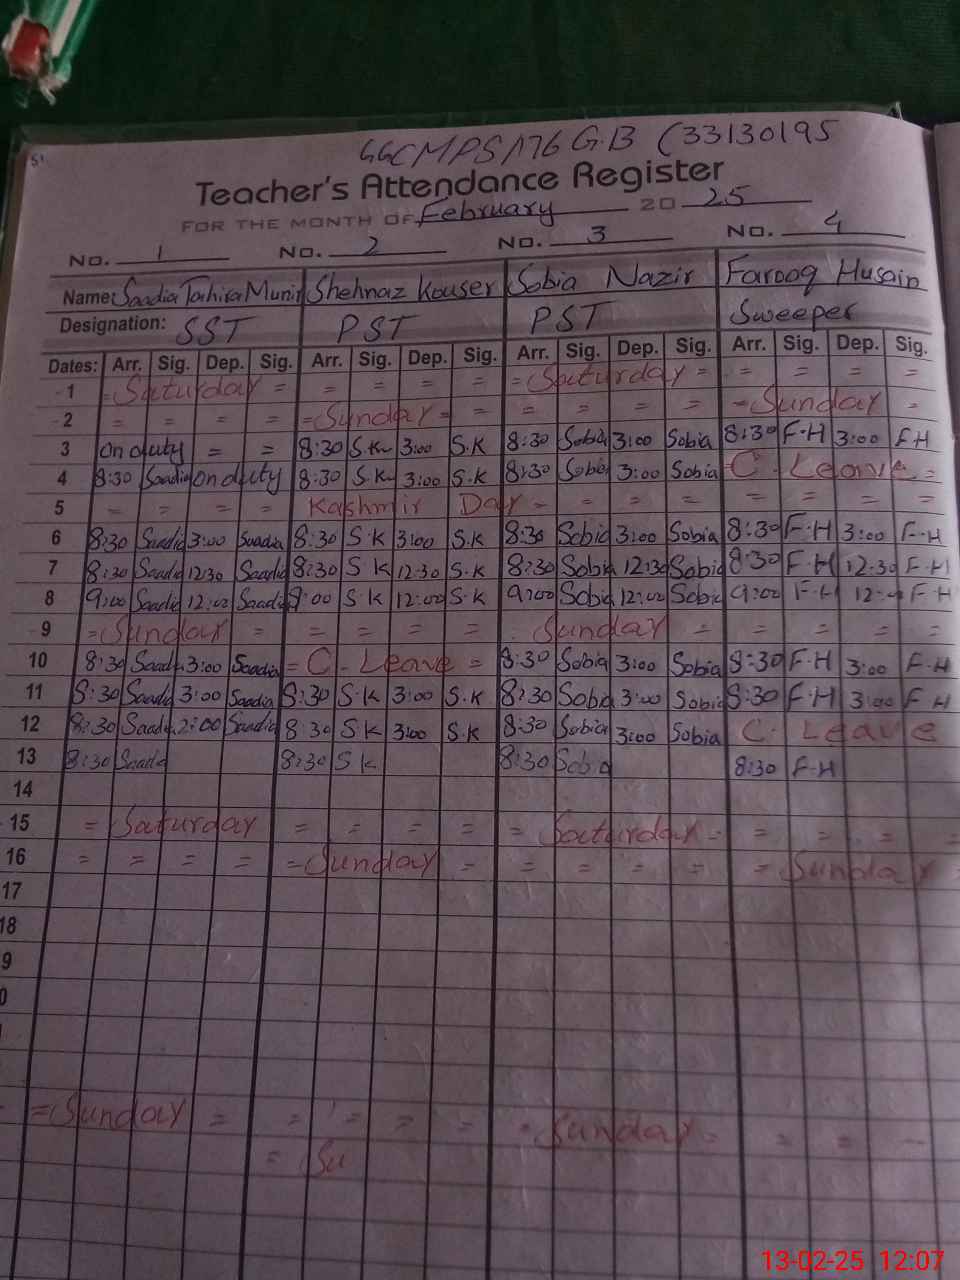 GGCMPS 176 G.B (33130195
Teacher's Attendance Register
FOR THE MONTH OF February 20 25
No. 1 No. 2 No. 3 No. 4
Name: Saadia Tahira Munir Shehnaz Kouser Sobia Nazir Farooq Husain
Designation: SST PST PST Sweeper
Dates: Arr. Sig. Dep. Sig. Arr. Sig. Dep. Sig. Arr. Sig. Dep. Sig. Arr. Sig. Dep. Sig.
1 = Saturday = = = = = = Saturday = = = = =
2 = = = = = Sunday = = = = = = = Sunday =
3 on duty = = 8:30 S.K 3:00 S.K 8:30 Sobia 3:00 Sobia 8:30 F-H 3:00 F.H
4 8:30 Saadia on duty 8:30 S.K 3:00 S.K 8:30 Sobia 3:00 Sobia C. Leave =
5 = = = = Kashmir Day = = = = = = = =
6 8:30 Saadia 3:00 Saadia 8:30 S.K 3:00 S.K 8:30 Sobia 3:00 Sobia 8:30 F-H 3:00 F-H
7 8:30 Saadia 12:30 Saadia 8:30 S K 12:30 S.K 8:30 Sobia 12:30 Sobia 8:30 F-H 12:30 F-H
8 9:00 Saadia 12:00 Saadia 9:00 S.K 12:00 S.K 9:00 Sobia 12:00 Sobia 9:00 F-H 12:00 F-H
9 = Sunday = = = = = Sunday = = = = =
10 8:30 Saadia 3:00 Saadia = C - Leave = 8:30 Sobia 3:00 Sobia 8:30 F-H 3:00 F-H
11 8:30 Saadia 3:00 Saadia 8:30 S.K 3:00 S.K 8:30 Sobia 3:00 Sobia 8:30 F-H 3:00 F H
12 8:30 Saadia 2:00 Saadia 8:30 S.K 3:00 S.K 8:30 Sobia 3:00 Sobia C. Leave
13 8:30 Saadia 8:30 S K 8:30 Sobia 8:30 F-H
14
15 = Saturday = = = = = Saturday = = = = =
16 = = = = = Sunday = = = = = = Sunday =
17
18
9
0
= Sunday = = = = = = Sunday = = = -
= Su
13-02-25 12:07